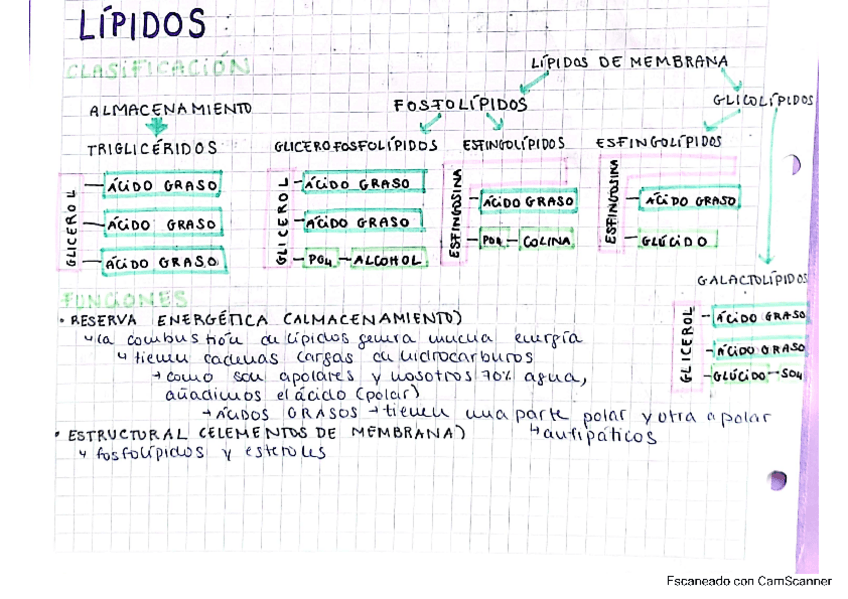 LÍPIDOS
CLASIFICACIÓN
LÍPIDOS DE MEMBRANA
ALMACENAMIENTO
FOSFOLÍPIDOS
GLICOLÍPIDOS
TRIGLICÉRIDOS
GLICEROFOSFOLÍPIDOS
ESFINGOLÍPIDOS
ESFINGOLÍPIDOS
GLICEROL
ÁCIDO GRASO
ÁCIDO GRASO
ÁCIDO GRASO
GLICEROL
ÁCIDO GRASO
ÁCIDO GRASO
PO4 - ALCOHOL
ESFINGOSINA
ÁCIDO GRASO
PO4 - COLINA
ESFINGOSINA
ÁCIDO GRASO
GLÚCIDO
GALACTOLÍPIDOS
GLICEROL
ÁCIDO GRASO
ÁCIDO GRASO
GLÚCIDO - SO4
FUNCIONES
• RESERVA ENERGÉTICA (ALMACENAMIENTO)
↳ la combustión de lípidos genera mucha energía
↳ tienen cadenas largas de hidrocarburos
→ como son apolares y nosotros 70% agua,
añadimos el ácido (polar)
→ ÁCIDOS GRASOS → tienen una parte polar y otra apolar
↳ anfipáticos
• ESTRUCTURAL (ELEMENTOS DE MEMBRANA)
↳ fosfolípidos y esteroles
Escaneado con CamScanner